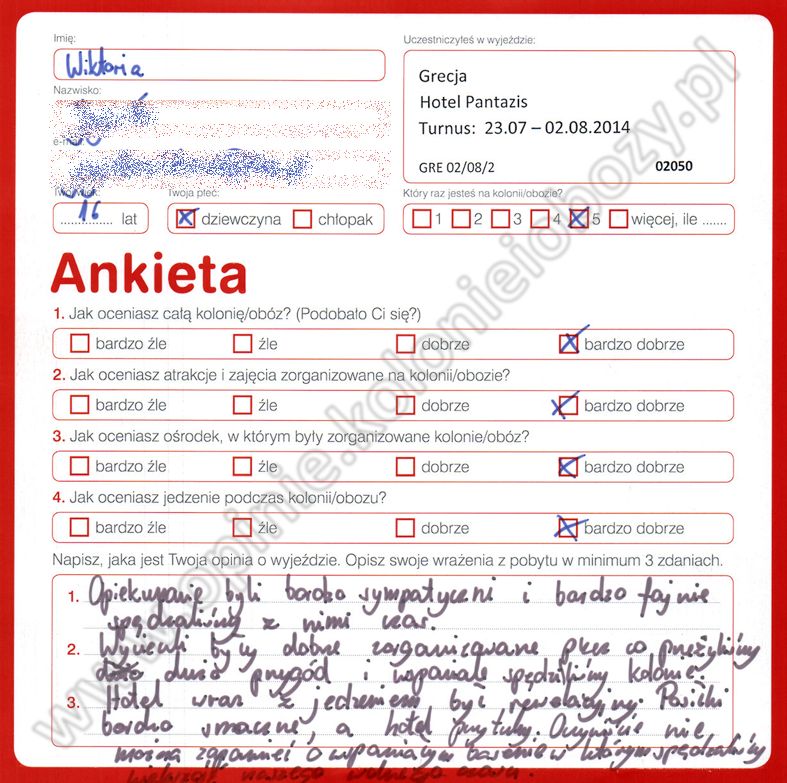 Imię:
Wiktoria
Nazwisko:
e-mail:
Twój wiek:
16 lat
Twoja płeć:
dziewczyna chłopak
Uczestniczyłeś w wyjeździe:
Grecja
Hotel Pantazis
Turnus: 23.07 – 02.08.2014
GRE 02/08/2 02050
Który raz jesteś na kolonii/obozie?
1 2 3 4 5 więcej, ile .......
Ankieta
1. Jak oceniasz całą kolonię/obóz? (Podobało Ci się?)
bardzo źle źle dobrze bardzo dobrze
2. Jak oceniasz atrakcje i zajęcia zorganizowane na kolonii/obozie?
bardzo źle źle dobrze bardzo dobrze
3. Jak oceniasz ośrodek, w którym były zorganizowane kolonie/obóz?
bardzo źle źle dobrze bardzo dobrze
4. Jak oceniasz jedzenie podczas kolonii/obozu?
bardzo źle źle dobrze bardzo dobrze
Napisz, jaka jest Twoja opinia o wyjeździe. Opisz swoje wrażenia z pobytu w minimum 3 zdaniach.
1. Opiekunowie byli bardzo sympatyczni i bardzo fajnie
spędzaliśmy z nimi czas.
2. Wycieczki były dobrze zorganizowane przez co przeżyliśmy
dużo przygód i wspaniale spędziliśmy kolonie.
3. Hotel wraz z jedzeniem był rewelacyjny. Posiłki
bardzo smaczne, a hotel przytulny. Oczywiście nie
można zapomnieć o wspaniałym basenie w którym spędzaliśmy
większość naszego wolnego czasu.
www.opinie.kolonieiobozy.pl